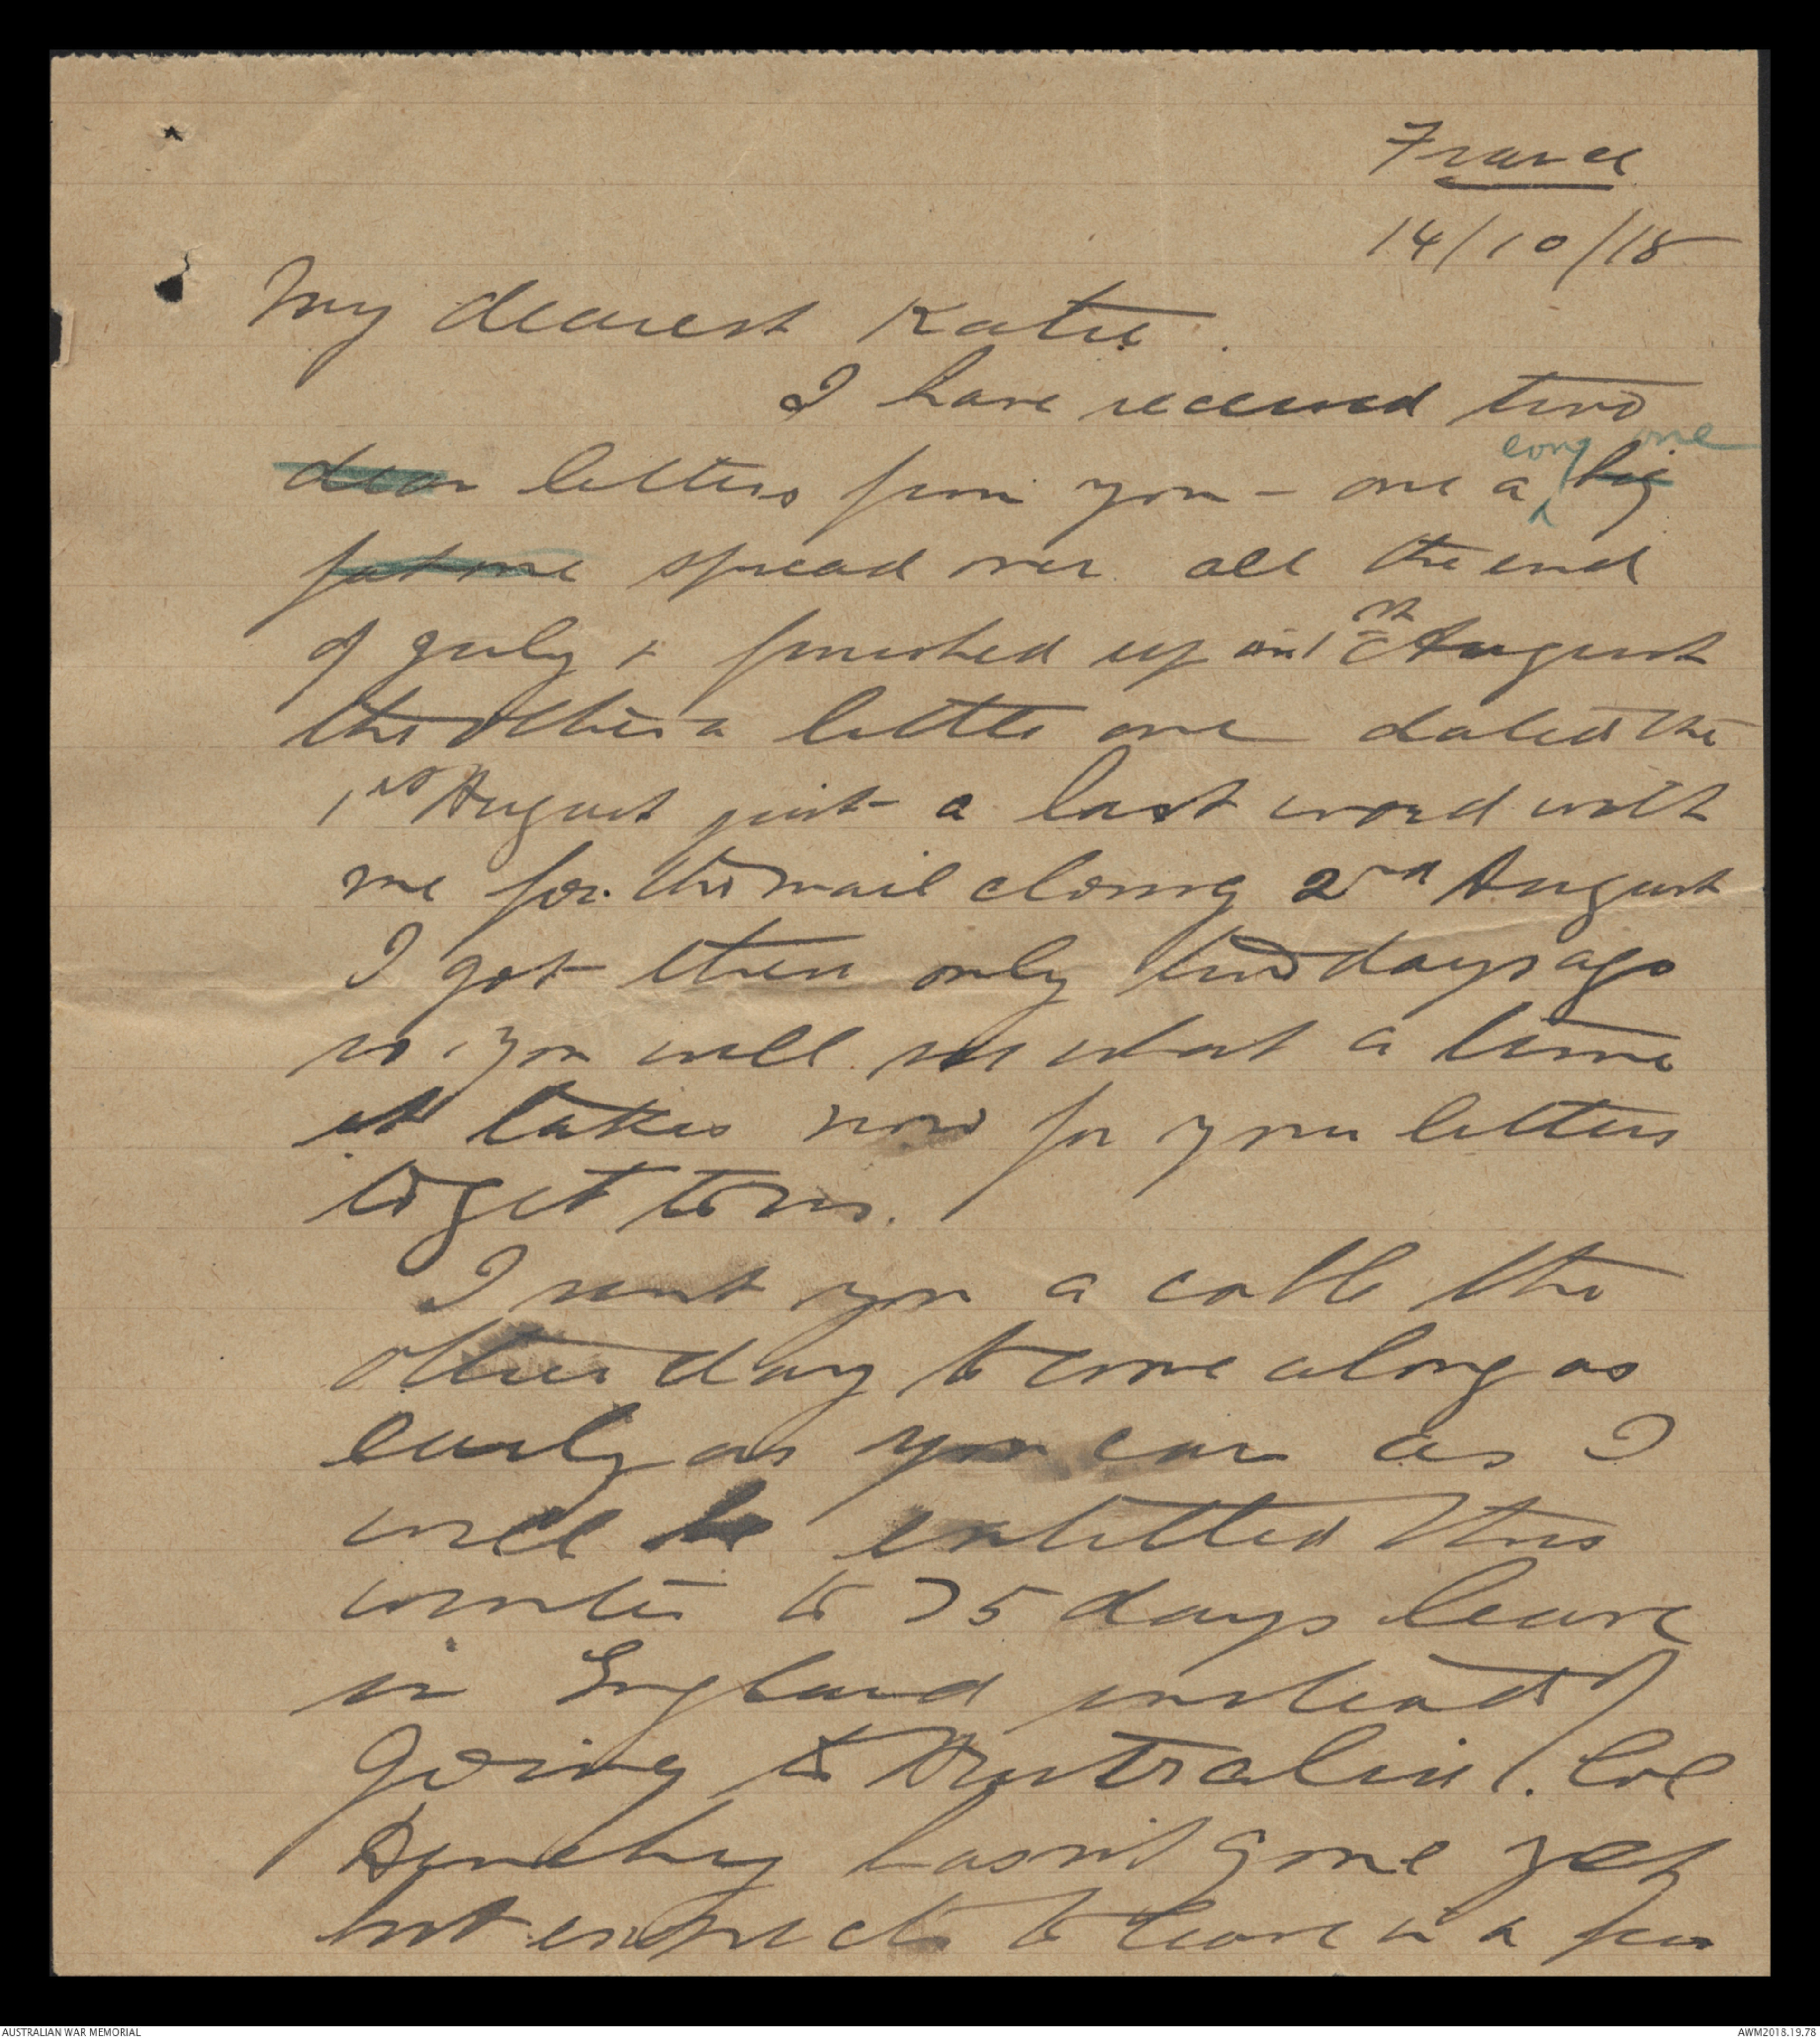 France
14/10/18
My dearest Katie.
I have received two
long one
dear letters from you - one a big
fat one spread over all the end
of July & finished up on 1st August
the other a little one dated the
1st August just a last word with
me for the mail closing 2nd August
I got them only two days ago
so you will see what a time
it takes now for your letters
to get to us.
I sent you a cable the
other day to come along as
early as you can as I
will be entitled this
winter to 75 days leave
in England instead of
going to Australia. Col
hasn't gone yet
but expects to leave in a few
AUSTRALIAN WAR MEMORIAL
AWM2018.19.78